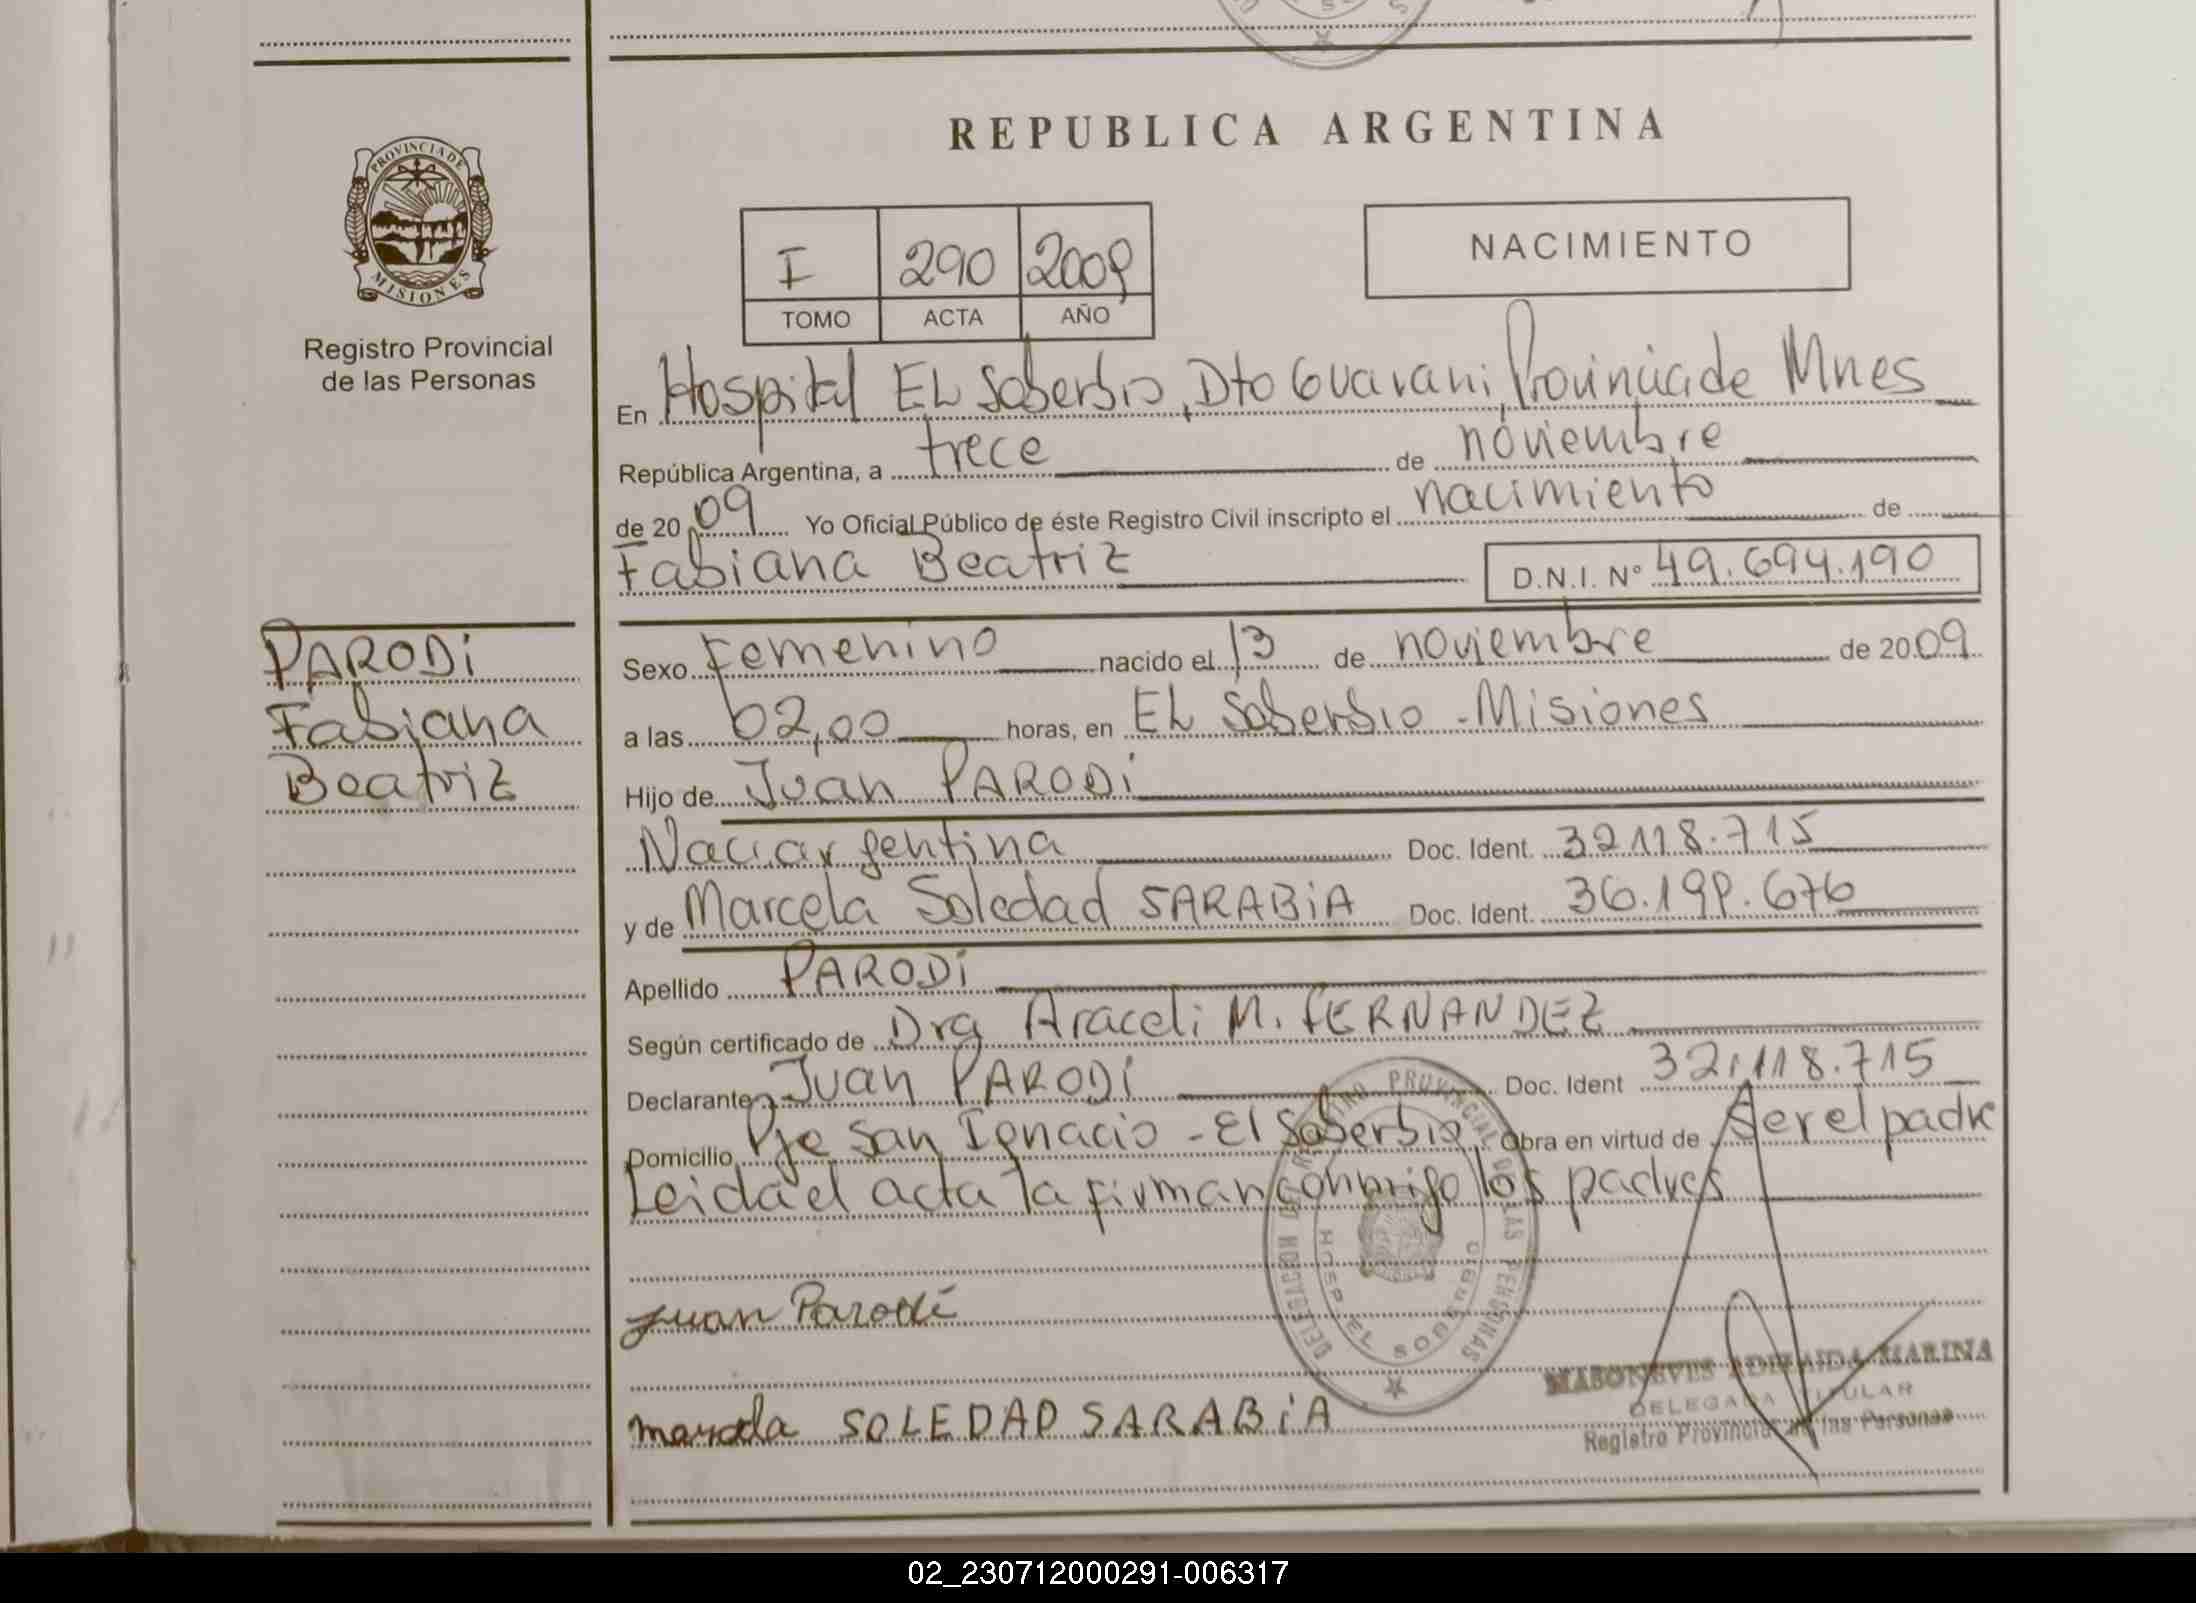 REPUBLICA ARGENTINA
PROVINCIA DE
MISIONES
Registro Provincial
de las Personas
I 290 2009
TOMO ACTA AÑO
NACIMIENTO
En Hospital EL Soberbio, Dto Guarani, Provincia de Mnes
República Argentina, a trece de noviembre
de 2009 Yo Oficial Público de éste Registro Civil inscripto el nacimiento de
Fabiana Beatriz D.N.I. Nº 49.694.190
PARODi
Fabiana
Beatriz
Sexo Femenino nacido el 13 de noviembre de 2009
a las 02,00 horas, en EL Soberbio - Misiones
Hijo de Juan PARODi
Nac. argentina Doc. Ident. 32118.715
y de Marcela Soledad SARABiA Doc. Ident. 36.199.676
Apellido PARODi
Según certificado de Dra Araceli M. FERNANDEZ
Declarante Juan PARODi Doc. Ident 32.118.715
Domicilio Pje San Ignacio - El Soberbio. Obra en virtud de Ser el padre
Leida el acta la firman conmigo los padres
Juan Parodi
DELEGACION DEL REGISTRO PROVINCIAL DE LAS PERSONAS
HOSP. EL
marcela SOLEDAD SARABiA
ADELAIDA MARINA
DELEGADA TITULAR
Registro Provincial de las Personas
02_230712000291-006317